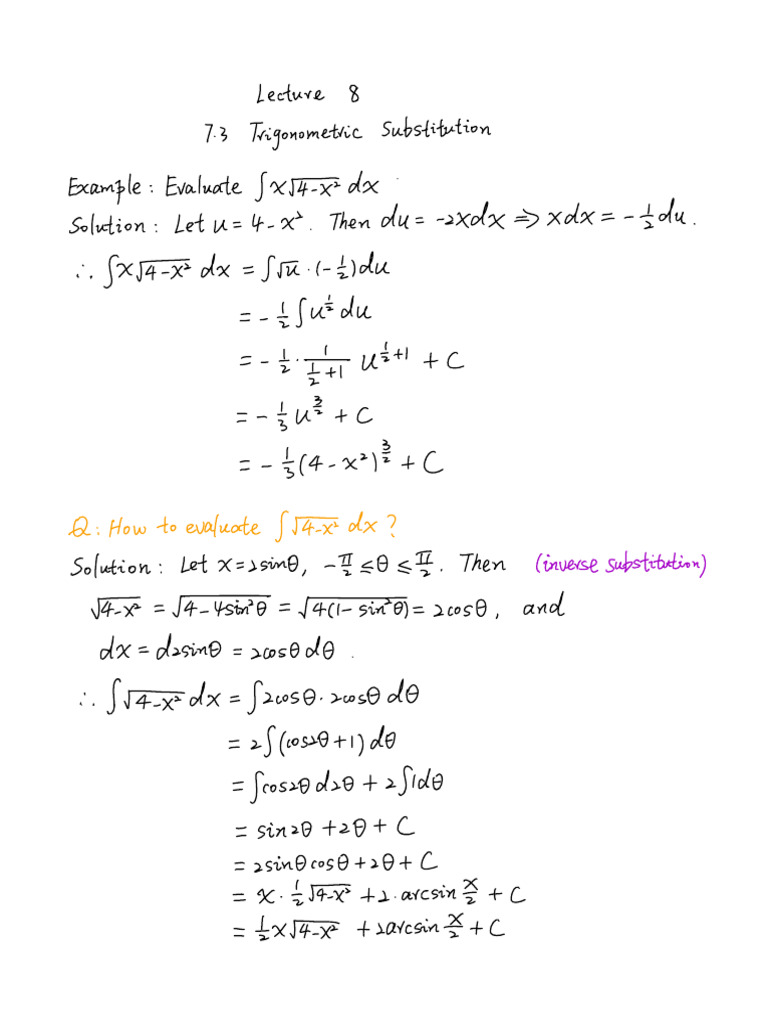 Lecture 8
7.3 Trigonometric Substitution
Example: Evaluate ∫x√(4-x²) dx.
Solution: Let u = 4-x². Then du = -2xdx ⇒ xdx = -½du.
∴ ∫x√(4-x²) dx = ∫√u · (-½)du
= -½ ∫u^(1/2) du
= -½ · 1/(½+1) u^(½+1) + C
= -⅓ u^(3/2) + C
= -⅓(4-x²)^(3/2) + C
Q: How to evaluate ∫√(4-x²) dx?
Solution: Let x=2sinθ, -π/2 ≤ θ ≤ π/2. Then (inverse substitution)
√(4-x²) = √(4-4sin²θ) = √(4(1-sin²θ)) = 2cosθ, and
dx = d2sinθ = 2cosθdθ.
∴ ∫√(4-x²) dx = ∫2cosθ·2cosθ dθ
= 2∫(cos2θ+1)dθ
= ∫cos2θd2θ + 2∫1dθ
= sin2θ + 2θ + C
= 2sinθcosθ + 2θ + C
= x·½√(4-x²) + 2·arcsin x/2 + C
= ½x√(4-x²) + 2arcsin x/2 + C